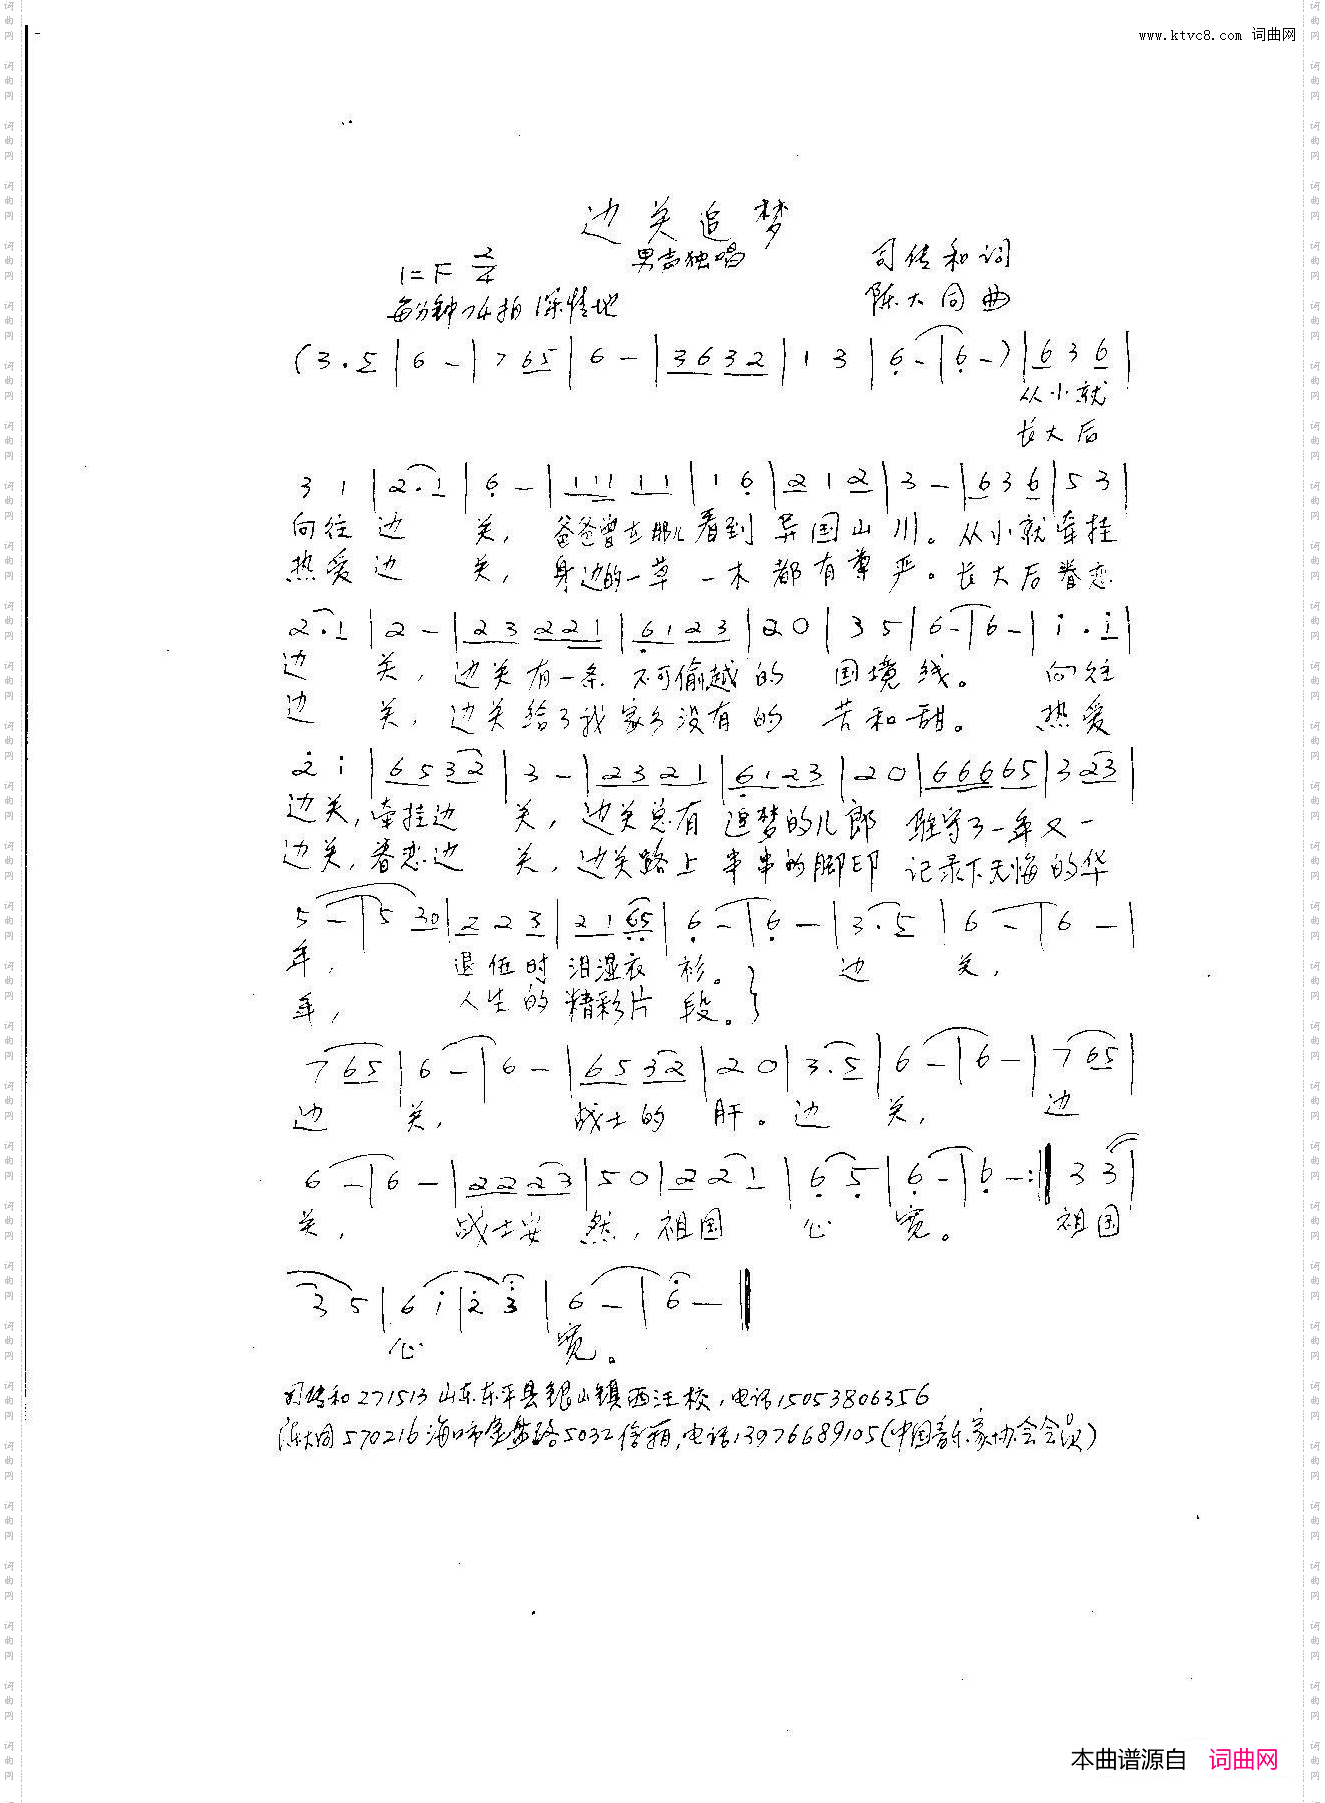 www.ktvc8.com 词曲网
边关追梦
男声独唱
1=F 2/4
司传和词
每分钟74拍 深情地
陈大同曲
(3.5|6-|7 65|6-|3632|1 3|6-|6-)|6 3 6|
从小就
长大后
3 1|2.1|6-|111 11|1 6|2 1 2|3-|6 3 6|5 3|
向往边 关, 爸爸曾在那儿看到异国山川。从小就牵挂
热爱边 关, 身边的一草一木都有尊严。长大后眷恋
2.1|2-|23 221|6123|20|3 5|6-|6-|i.i|
边 关, 边关有一条不可偷越的 国境线。 向往
边 关, 边关给了我家乡没有的 苦和甜。 热爱
2 i|6532|3-|2321|6123|20|66665|3 23|
边关,牵挂边 关, 边关总有追梦的儿郎 驻守了一年又一
边关,眷恋边 关, 边关路上串串的脚印 记录下无悔的华
5-|5 30|2 2 3|21 65|6-|6-|3.5|6-|6-|
年, 退伍时泪湿衣 衫。 边 关,
年, 人生的精彩片 段。
7 65|6-|6-|6532|20|3.5|6-|6-|7 65|
边 关, 战士的 肝。边 关, 边
6-|6-|2223|50|2 2 1|6 5|6-|6-:|3 3|
关, 战士安 然,祖国 心 宽。 祖国
3 5|6 i|2 3|6-|6-|
心 宽。
司传和271513山东东平县银山镇西汪校,电话15053806356
陈大同570216海口市金盘路5032信箱,电话13976689105(中国音乐家协会会员)
本曲谱源自 词曲网
词曲网